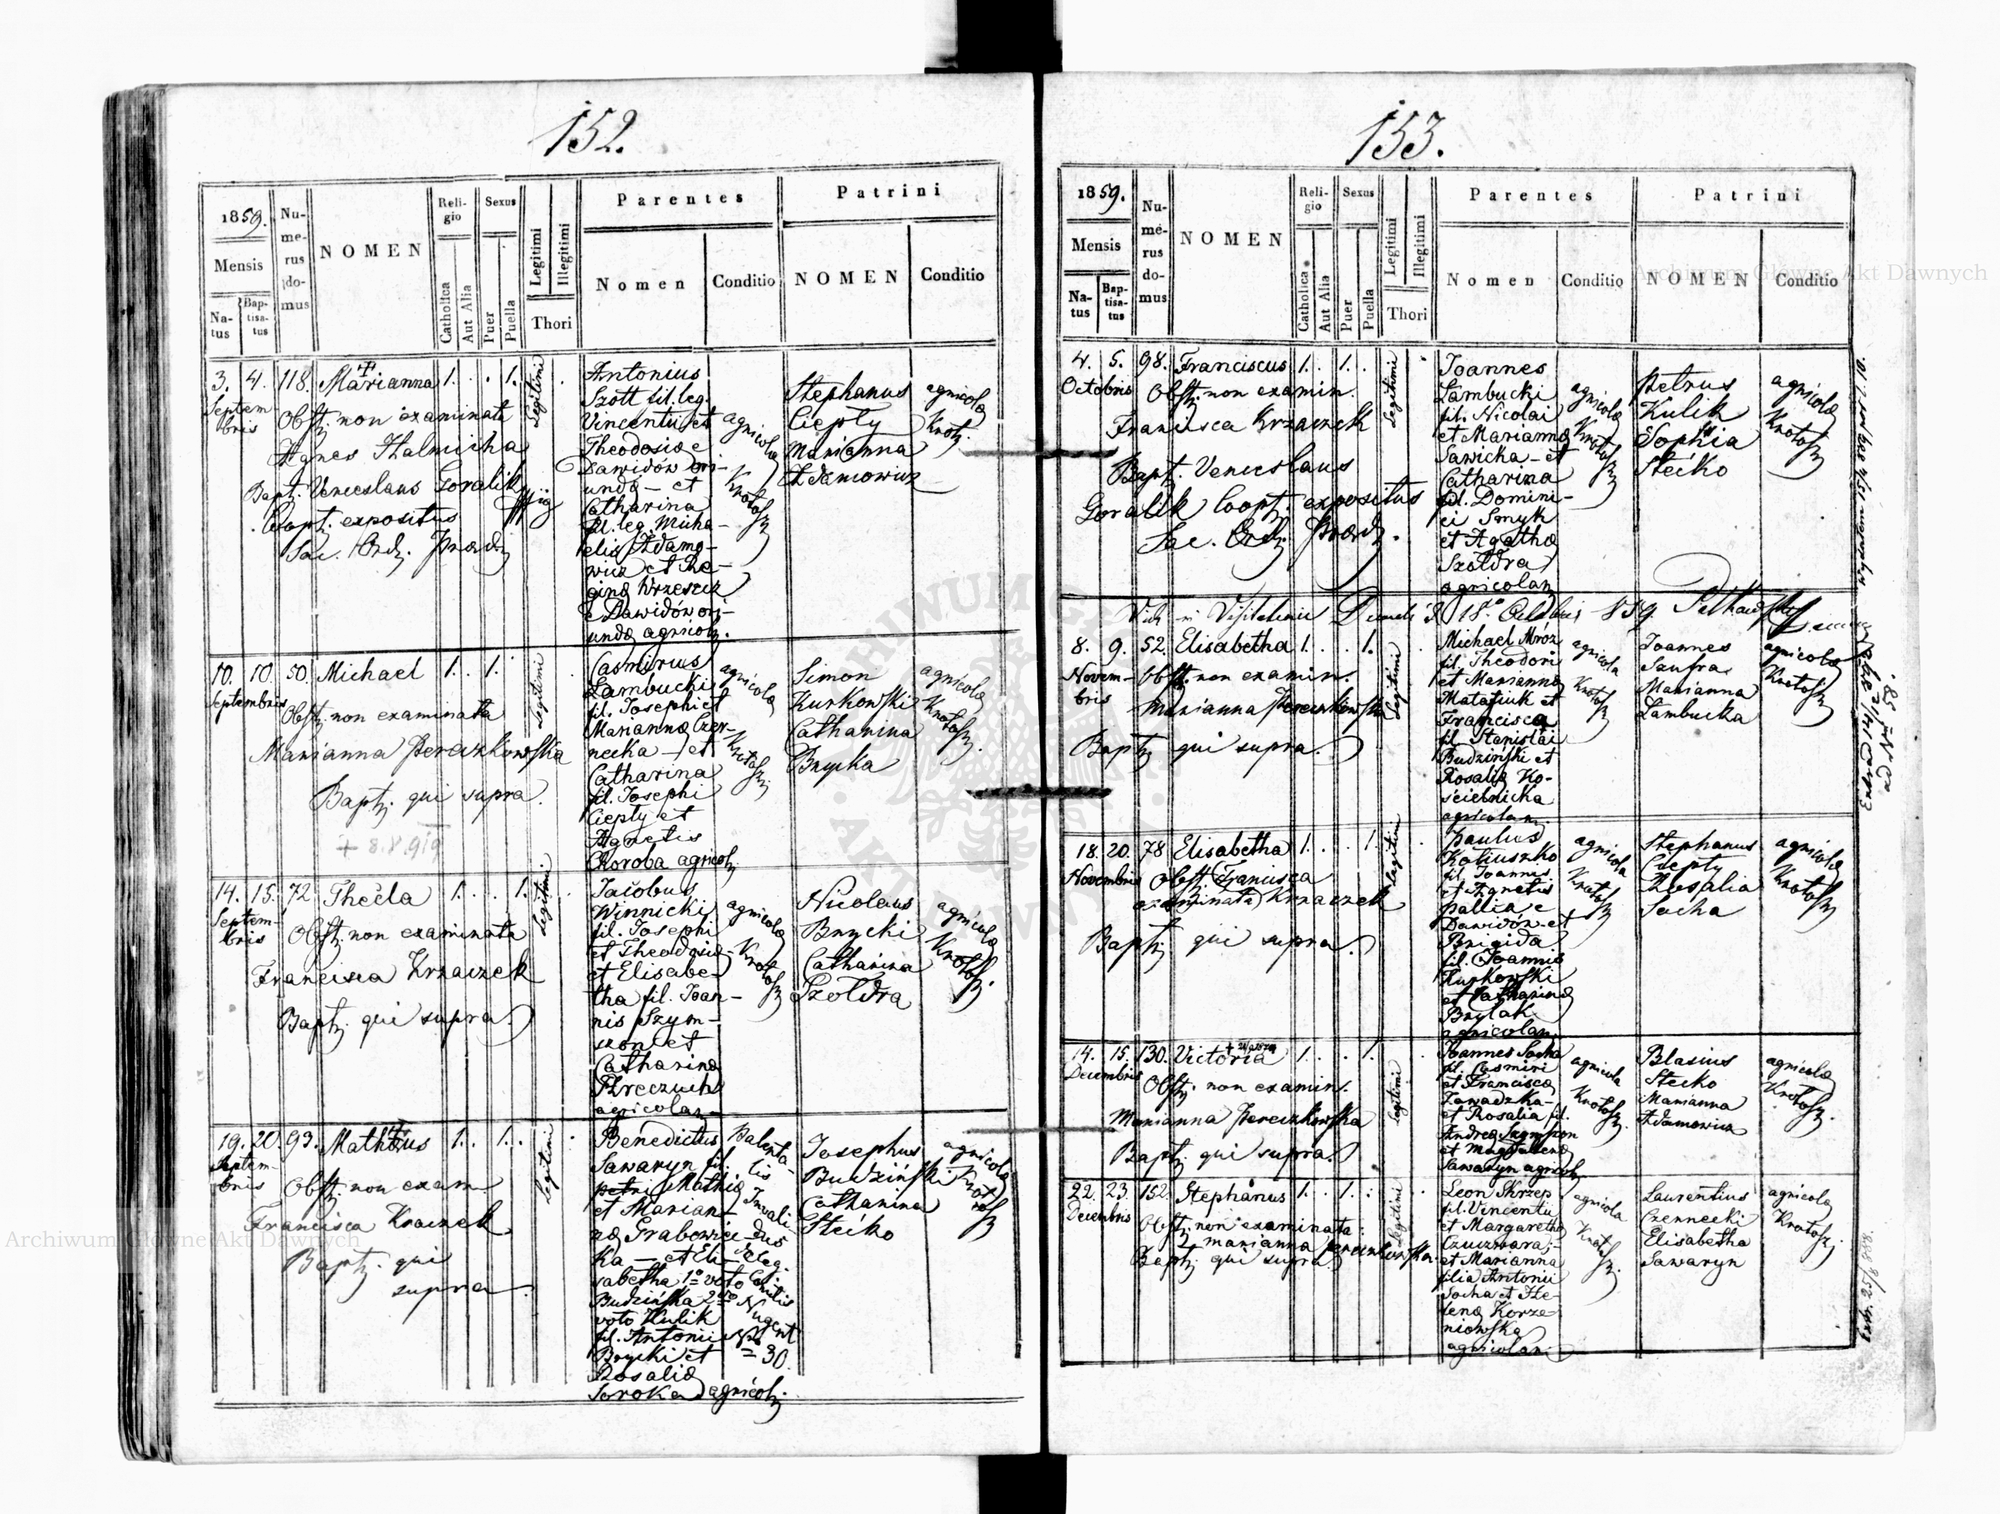 152.
1859.
Mensis
Na-
tus
Bap-
tisa-
tus
Nu-
me-
rus
do-
mus
NOMEN
Reli-
gio
Catholica
Aut Alia
Sexus
Puer
Puella
Legitimi
Illegitimi
Thori
Parentes
Nomen
Conditio
Patrini
NOMEN
Conditio
3. 4. 118. Marianna 1. . . 1.
Septem
bris
Obst. non examinata
Agnes Halnicha
Bapt. Venceslaus Goralik
Coopt. expositus
Sac. Ord. Praed.
Legitimi
Antonius
Szott fil. leg.
Vincentii et
Theodosiæ
Dawidów ori-
undæ - et
Catharina
fil. leg. Micha-
elis Adamo-
wicz et Re-
ginæ Krzescz
e Dawidów ori-
undæ agricol.
agricolæ
Krotosz
Stephanus
Ciepły
Marianna
Adamowicz
agricolæ
Krot.
10. 10. 50. Michael 1. . 1.
Septembris
Obst. non examinata
Marianna Pereczkowska
Baptz. qui supra.
Legitimi
Casmirus
Lambucki
fil. Josephi et
Mariannæ Czer-
necka - et
Catharina
fil. Josephi
Ciepły et
Agnetis
Choroba agricol.
agricolæ
Krotosz.
Simon
Kurkowski
Catharina
Brycka
agricolæ
Krotosz.
14. 15. 72. Thecla 1. . . 1.
Septem
bris
Obst. non examinata
Francisca Krzaczek
Baptz. qui supra.
Legitimi
Jacobus
Winnicki
fil. Josephi
et Theodosiæ
et Elisabe-
tha fil. Joan-
nis Szym-
et
Catharinæ
agricolar.
agricolæ
Krotosz
Nicolaus
Brycki
Catharina
Szoldra
agricolæ
Krotosz.
19. 20. 93. Mathæus 1. . 1.
Septem-
bris
Obst. non exam.
Francisca Kraczek
Baptz. qui
supra.
Legitimi
Benedictus
Sawaryn fil.
Petri Mathiæ
et Marian-
næ Grabowiec-
ka - et Eli-
sabetha 1º voto
Budzińska 2do
voto Kulik
fil. Antonii
Brycki et
Rosaliæ
Soroka agricol.
Patenta-
lis
Invali-
dus
Nugent
No
= 30.
Josephus
Budziński
Catharina
Stećko
agricolæ
Krot
osz
153.
1859.
Mensis
Na-
tus
Bap-
tisa-
tus
Nu-
me-
rus
do-
mus
NOMEN
Reli-
gio
Catholica
Aut Alia
Sexus
Puer
Puella
Legitimi
Illegitimi
Thori
Parentes
Nomen
Conditio
Patrini
NOMEN
Conditio
4. 5. 98. Franciscus 1. . 1.
Octobris
Obst. non examin.
Francisca Krzaczek
Bapt. Venceslaus
Goralik Coopt. expositus
Sac. Ord. Praed.
Legitimi
Joannes
Lambucki
fil. Nicolai
et Mariannæ
Sawicka - et
Catharina
fil. Domini-
ci Smyk
et Agathæ
Szoldra
agricolar.
agricolæ
Krotosz
Petrus
Kulik
Sophia
Stećko
agricolæ
Krotosz
8. 9. 52. Elisabetha 1. . . 1.
Novem-
bris
Obst. non examin.
Marianna Pereczkowska
Baptz. qui supra.
Legitimi
Michael Mróz
fil. Theodori
et Mariannæ
Matafiuk et
Francisca
fil. Stanislai
Budziński et
Rosaliæ Ko-
ścielnicka
agricolar.
agricola
Krotosz
Joannes
Saufra
Marianna
Lambucka
agricolæ
Krotosz
18. 20. 78 Elisabetha 1. . . 1.
Novembris
Obst. Francisca
examinata Krzaczek
Baptz. qui supra.
Legitimi
Paulus
Katiuszko
fil. Joannis
et Agnetis
Pallica e
Dawidów et
Brigida
fil. Joannis
Kurkowski
et Catharinæ
Brylak
agricolar.
agricola
Krotosz
Stephanus
Ciepły
Rosalia
Socha
agricolæ
Krotosz
14. 15. 130. Victoria 1. . . 1.
Decembris
Obst. non examin.
Marianna Pereczkowska
Baptz. qui supra.
Legitimi
Joannes Socha
fil. Casmiri
et Franciscæ
Zawadzka-
et Rosalia fil.
Andreæ Szympon
et Magdalenæ
Sawaryn agricol.
agricola
Krotosz.
Blasius
Stećko
Marianna
Adamowicz
agricolæ
Krotosz.
22. 23. 152. Stephanus 1. . 1.
Decembris
Obst. non examinata
Marianna Pereczkowska.
Baptz. qui supra
Legitimi
Leon Skrzep
fil. Vincentii
et Margarethæ
Czuczwara;
et Marianna
filia Antonii
Socha et He-
lenæ Korze-
niowska
agricolar.
agricola
Krotosz.
Laurentius
Czernecki
Elisabetha
Sawaryn
agricolæ
Krotosz.
Archiwum Główne Akt Dawnych
Archiwum Główne Akt Dawnych
ARCHIWUM GŁÓWNE
AKT DAWNYCH